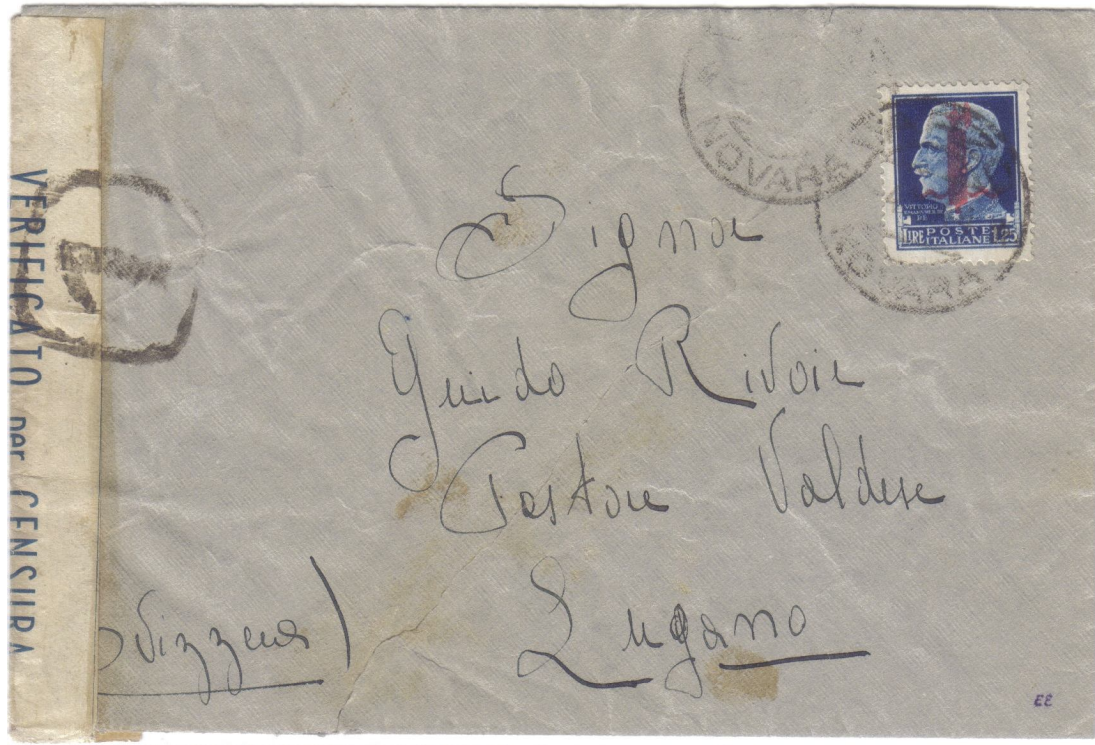 VERIFICATO per CENSURA
NOVARA
NOVARA
VITTORIO
LIRE POSTE ITALIANE 1,25
Signor
Guido Rivoir
Pastore Valdese
Lugano
(Svizzera)
EE